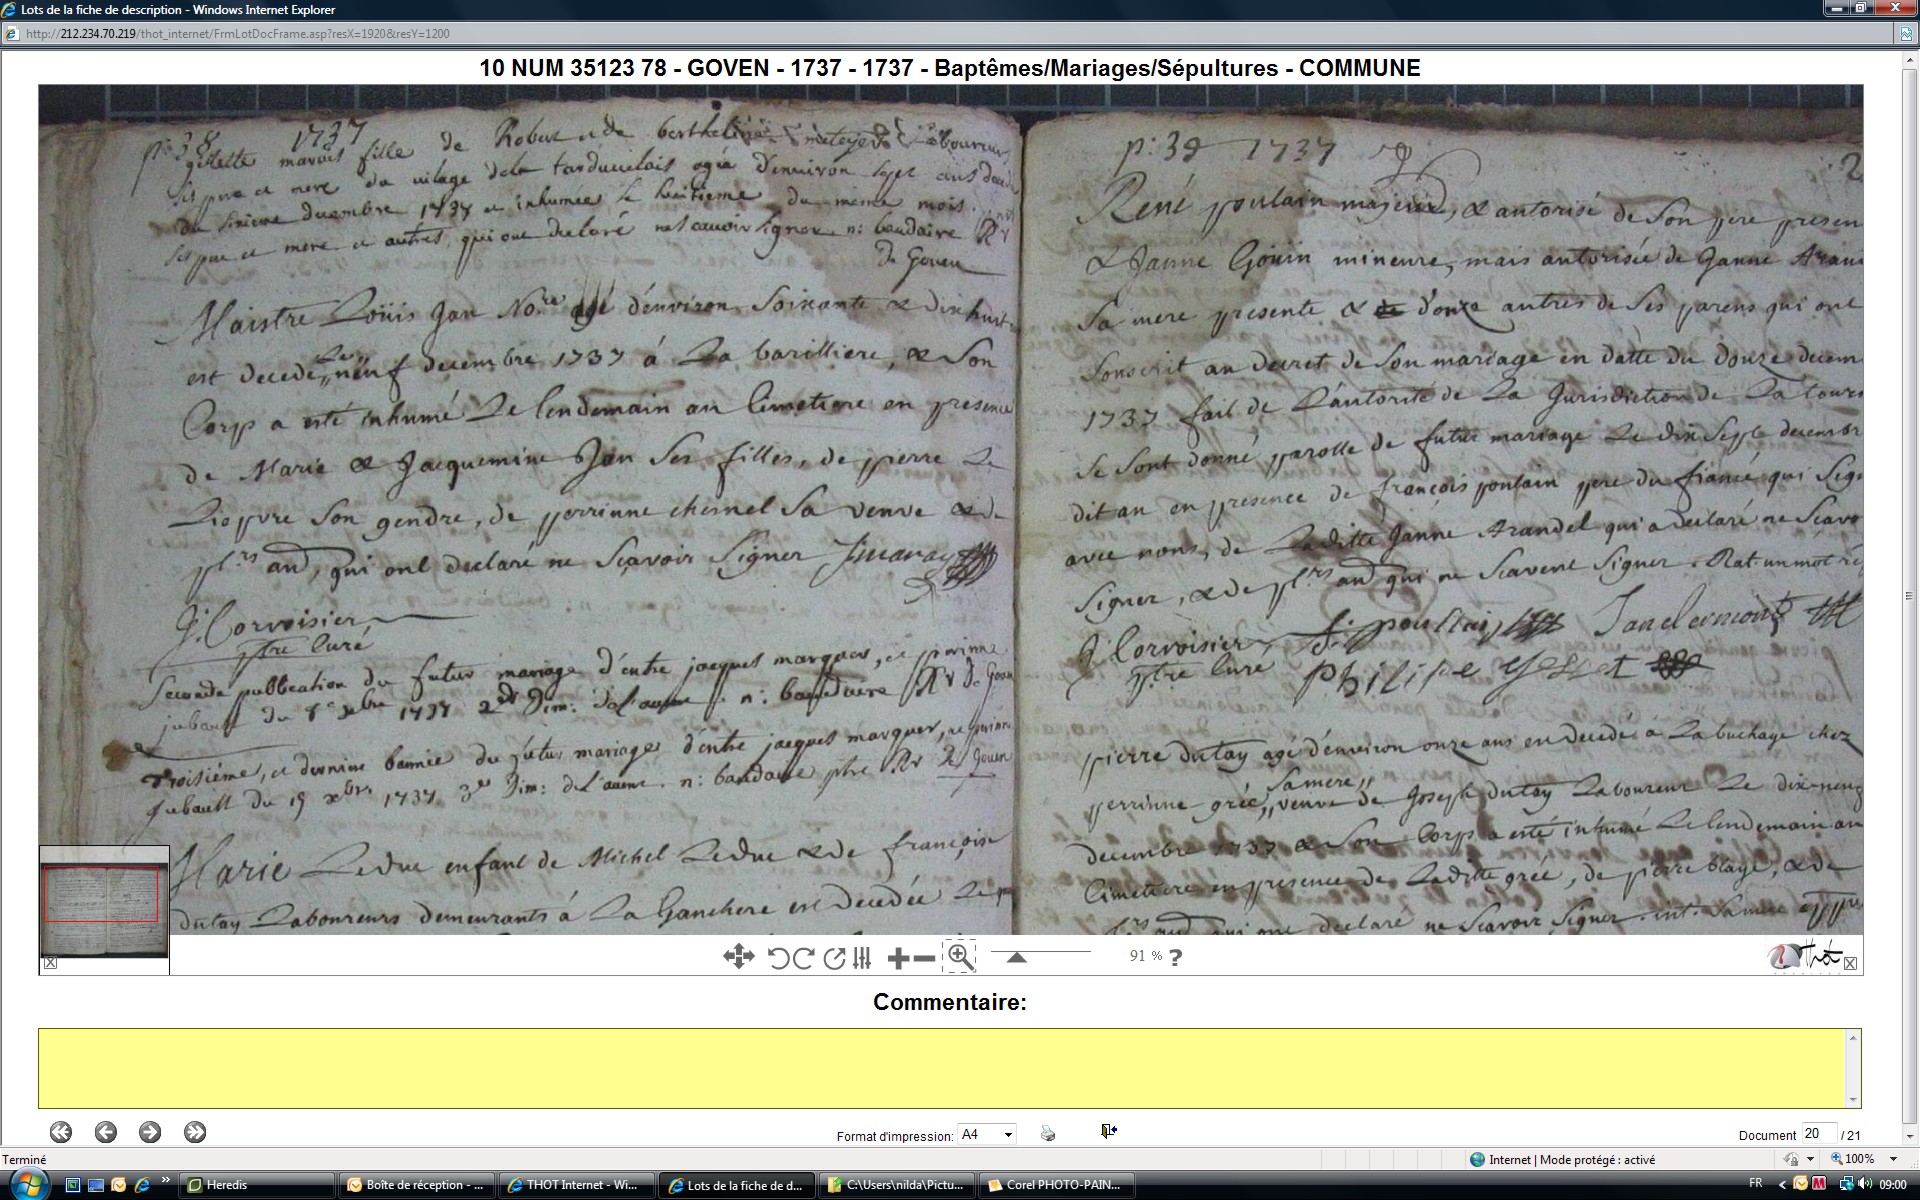 Lots de la fiche de description - Windows Internet Explorer
http://212.234.70.219/thot_internet/FrmLotDocFrame.asp?resX=1920&resY=1200
10 NUM 35123 78 - GOVEN - 1737 - 1737 - Baptêmes/Mariages/Sépultures - COMMUNE
p: 38 1737
fille de Robert et de
ses pere et mere du vilage de la agée d'environ sept ans
du sixieme decembre 1737 et inhumée le huitieme du meme mois
ses pere et mere et autres qui ont declaré ne scavoir signer n: baudaire
de Goven
Maistre Loüis Jan No.re agé d'environ Soixante & dixhuit
est decedé le neuf decembre 1737 á La barilliere, & Son
Corp a esté inhumé Le lendemain au Cimetiere en presence
de Marie & Jacquemine Jan Ses filles, de pierre Le
son gendre, de perrinne chesnel Sa veuve & de
pl.rs au, qui ont declaré ne Sçavoir Signer
J. Corvoisier
ptre curé
Seconde publication du futur mariage d'entre jacques marquer, et perinne
jubault du 8e xbre 1737 2de Dim: de l'auent . n: baudaire Rr de Goven
Troisiéme, et derniere bannie du futur mariage d'entre jacques marquer, et perinne
Jubault du 15 xbre 1737 3e Dim: de l'auent . n: baudaire ptre Rr de Gouen
Marie Leduc enfant de Michel Leduc & de françoise
dutay Laboureurs demeurants á La Ganchere est decedée Le
p: 39 1737
René poulain majeur, & autorisé de Son pere presen
& Janne Goüin mineure, mais autorisée de Janne
Sa mere presente & de douze autres de Ses parens qui ont
Souscrit au decret de Son mariage en datte du douze decem
1737 fait de L'autorité de La Jurisdiction de La
Se Sont donné parolle de futur mariage Le dix Sept decembre
dit an en presence de françois poulain pere du fiancé qui Sig
avec nous, de Laditte Janne Arandel qui a declaré ne Scavo
Signer, & de pl.rs au qui ne Scavent Signer . Rat. un mot
J. Corvoisier
ptre curé
philipe
pierre dutay agé d'environ onze ans est decedé á La buchage chez
perrinne grée, Sa mere, veuve de Joseph dutay Laboureur Le dix-neuf
decembre 1737 & Son Corp a esté inhumé Le lendemain au
Cimetiere en presence de Laditte grée, de pierre blaye, & de
pl.rs au qui ont declaré ne Scavoir Signer . int. Sa mere
91 %
?
Thot
Commentaire:
Format d'impression: A4
Document 20 / 21
Terminé
Internet | Mode protégé : activé
100%
Heredis
Boîte de réception - ...
THOT Internet - Wi...
Lots de la fiche de d...
C:\Users\nilda\Pictu...
Corel PHOTO-PAIN...
FR
09:00